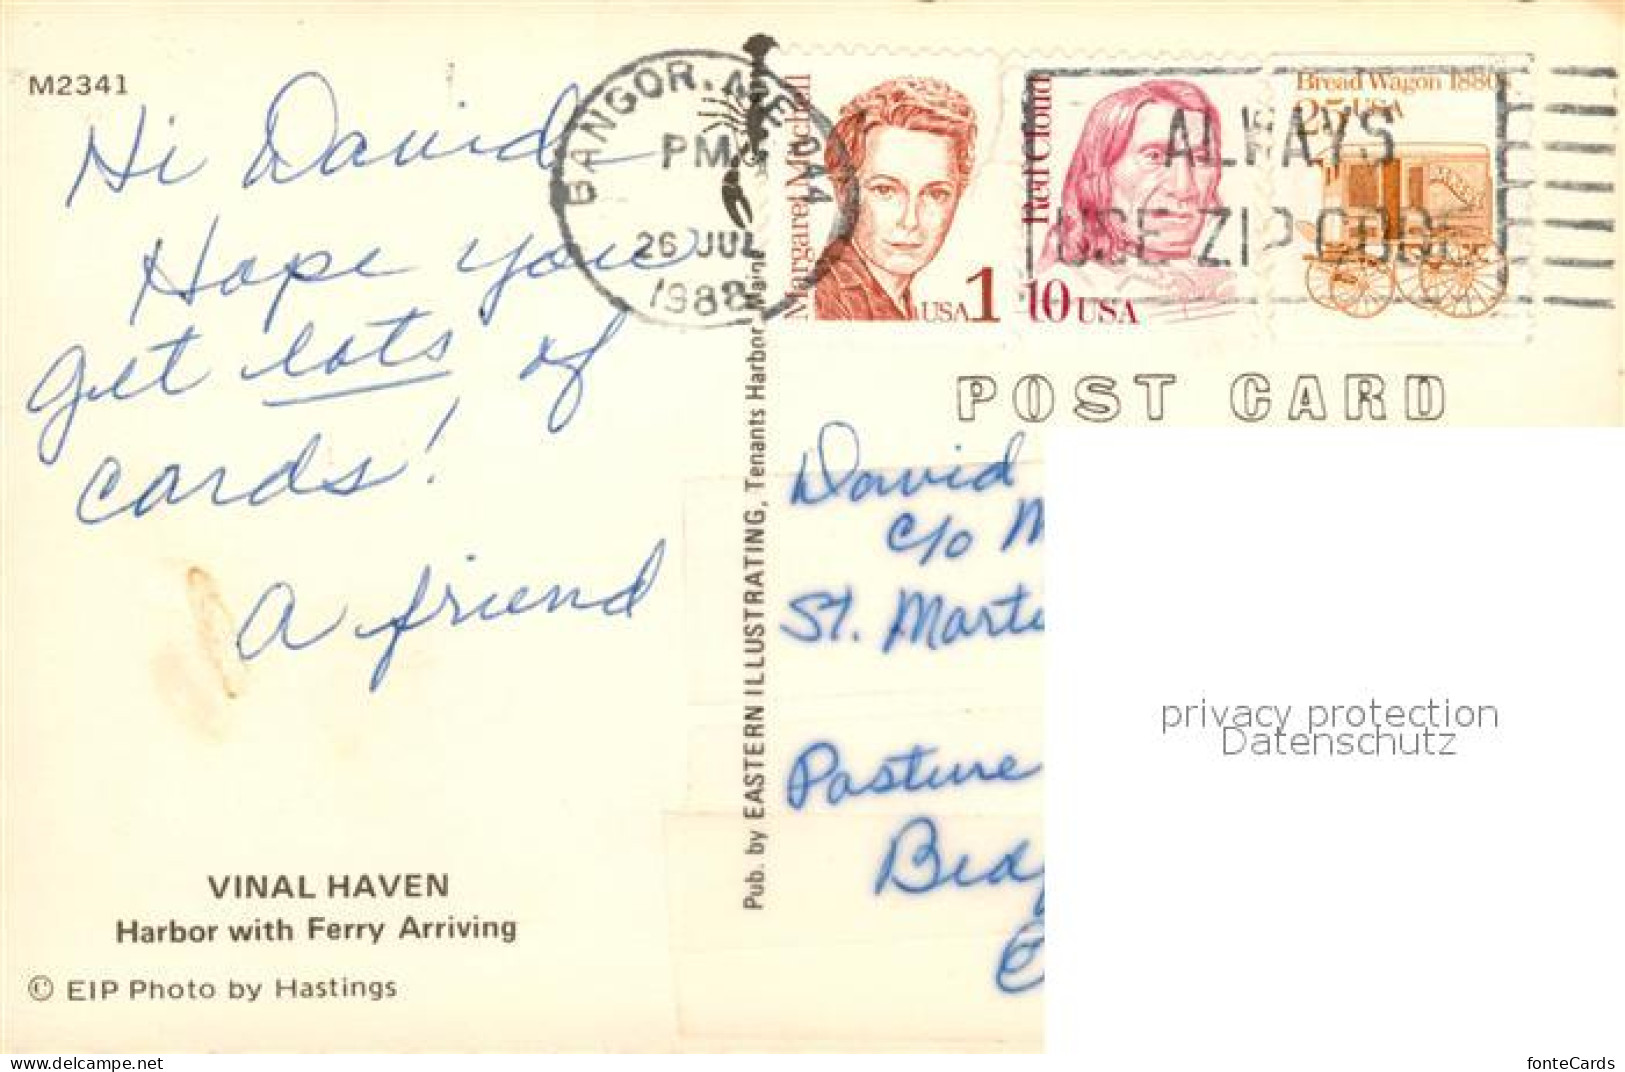 M2341
Hi David
Hope you
get lots of
cards!
A friend
VINAL HAVEN
Harbor with Ferry Arriving
© EIP Photo by Hastings
Pub. by EASTERN ILLUSTRATING, Tenants Harbor, Maine
BANGOR, ME 044
PM
26 JUL
1988
Margaret Mitchell
USA 1
Red Cloud
10 USA
Bread Wagon 1880s
25 USA
ALWAYS
USE ZIP CODE
POST CARD
David
c/o M
St. Marti
Pasture
Bedf
privacy protection
Datenschutz
www.delcampe.net
fonteCards